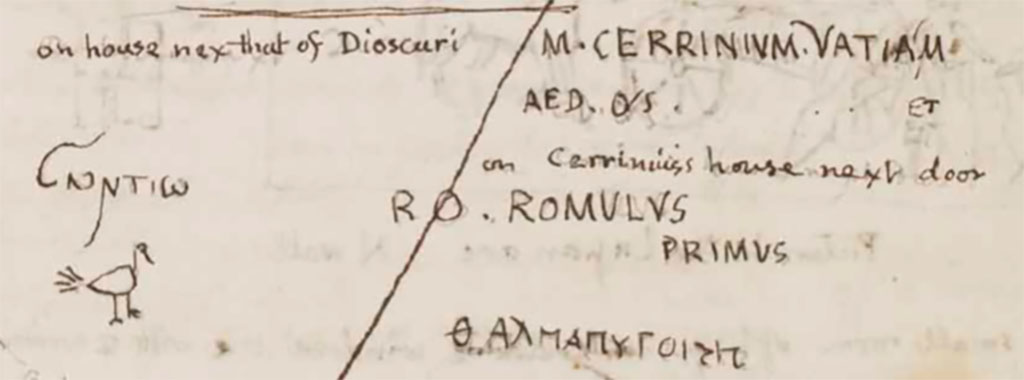 on house next that of Dioscuri
M. CERRINIVM. VATIAM
AED. O S. . . ET
on Cerriniuss house next door
R O . ROMVLVS
PRIMUS